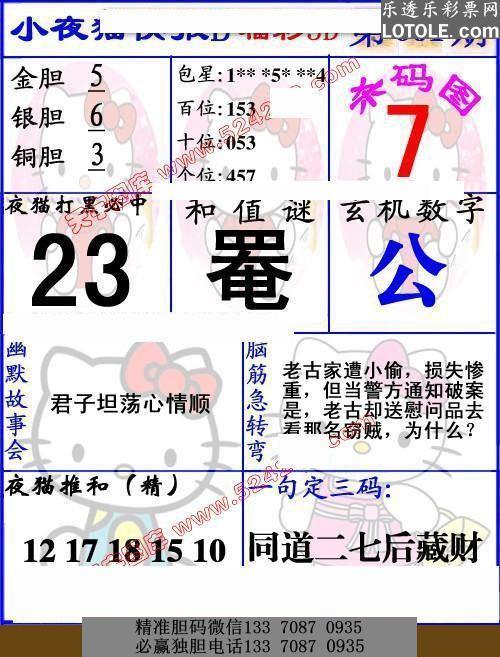 乐透乐彩票网
LOTOLE.COM
小夜猫
福彩3D
第
期
金胆 5
银胆 6
铜胆 3
包星:1** *5* **4
百位:153
十位:053
个位:457
杀码图
7
夜猫打黑必中
23
和值谜
罨
玄机数字
公
幽默故事会
君子坦荡心情顺
脑筋急转弯
老古家遭小偷，损失惨
重，但当警方通知破案
是，老古却送慰问品去
看那名窃贼，为什么？
夜猫推和（精）
12 17 18 15 10
一句定三码:
同道二七后藏财
精准胆码微信133 7087 0935
必赢独胆电话133 7087 0935